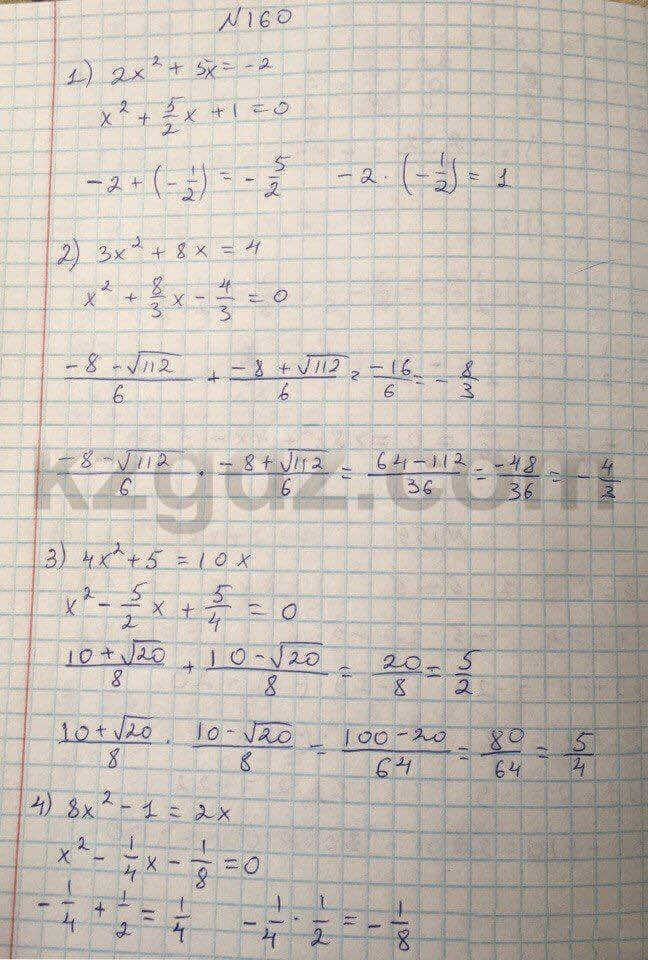 №160
1) 2x² + 5x = -2
x² + 5/2 x + 1 = 0
-2 + (-1/2) = - 5/2   -2 · (-1/2) = 1
2) 3x² + 8x = 4
x² + 8/3 x - 4/3 = 0
(-8 - √112)/6 + (-8 + √112)/6 = -16/6 = - 8/3
(-8 - √112)/6 · (-8 + √112)/6 = (64 - 112)/36 = -48/36 = - 4/3
kzgdz.com
3) 4x² + 5 = 10x
x² - 5/2 x + 5/4 = 0
(10 + √20)/8 + (10 - √20)/8 = 20/8 = 5/2
(10 + √20)/8 · (10 - √20)/8 = (100 - 20)/64 = 80/64 = 5/4
4) 8x² - 1 = 2x
x² - 1/4 x - 1/8 = 0
- 1/4 + 1/2 = 1/4   - 1/4 · 1/2 = - 1/8